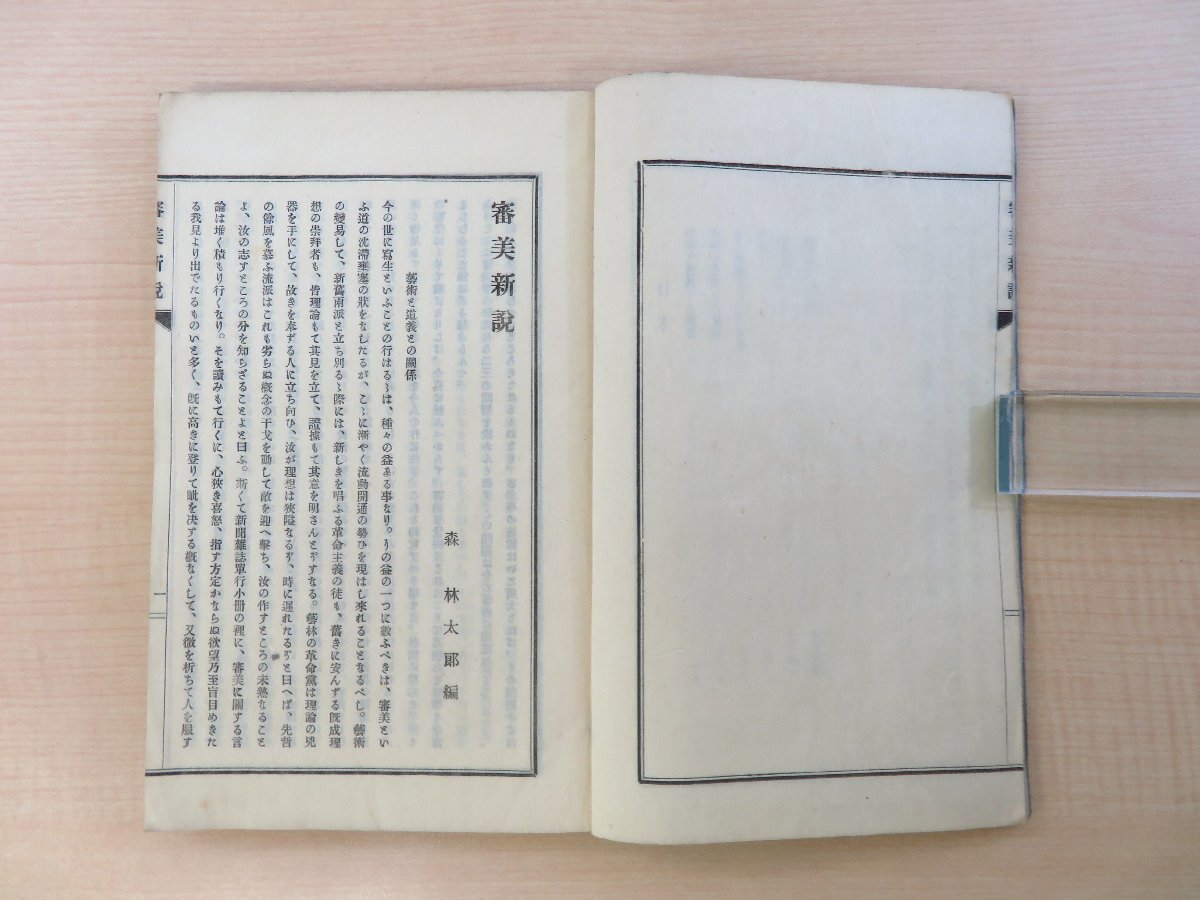 審美新說
審美新說
森林太郎編
藝術と道義との關係
今の世に寫生といふことの行はるゝは、種々の益ある事なり。その益の一つに數ふべきは、審美とい
ふ道の沈滯壅塞の狀をなしたるが、こゝに漸やく流動開通の勢ひを現はし來れることなるべし。藝術
の變易して、新舊兩派と立ち別るゝ際には、新しきを唱ふる革命主義の徒も、舊きに安んずる旣成理
想の崇拜者も、皆理論もて其見を立て、證據もて其意を明さんとぞすなる。藝林の革命黨は理論の兇
器を手にして、故きを奉ずる人に立ち向ひ、汝が理想は狹隘なるぞ、時に遲れたるぞと曰へば、先哲
の餘風を慕ふ流派はこれも劣らぬ槪念の干戈を動して敵を迎へ擊ち、汝の作すところの未熟なること
よ、汝の志すところの分を知らざることよと曰ふ。斯くて新聞雜誌單行小冊の裡に、審美に關する言
論は堆く積もり行くなり。そを讀みもて行くに、心狹き喜怒、指す方定かならぬ欲望乃至盲目めきた
る我見より出でたるものいと多く、旣に高きに登りて眦を決する槪なくして、又微を析ちて人を服す
審美新說
一